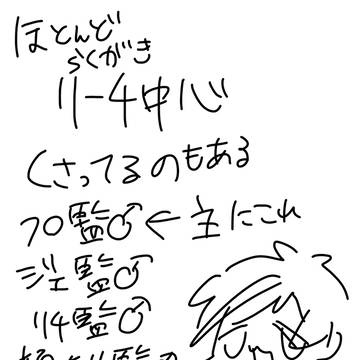 ほとんど
らくがき
リーチ中心
くさってるのもある
フロ監♂←主にこれ
ジェ監♂
リチ監♂